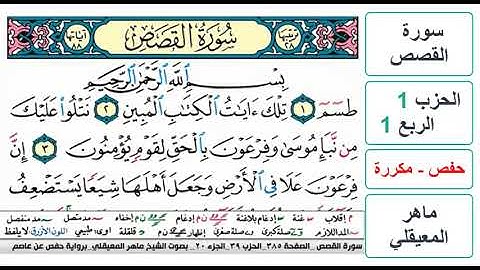 سُورَةُ القَصَصِ
آياتها ٨٨
ترتيبها ٢٨
بِسْمِ ٱللَّهِ ٱلرَّحْمَٰنِ ٱلرَّحِيمِ
طسٓمٓ ١ تِلْكَ ءَايَٰتُ ٱلْكِتَٰبِ ٱلْمُبِينِ ٢ نَتْلُوا۟ عَلَيْكَ
مِن نَّبَإِ مُوسَىٰ وَفِرْعَوْنَ بِٱلْحَقِّ لِقَوْمٍ يُؤْمِنُونَ ٣ إِنَّ
فِرْعَوْنَ عَلَا فِى ٱلْأَرْضِ وَجَعَلَ أَهْلَهَا شِيَعًا يَسْتَضْعِفُ
سورة القصص . الصفحة ٣٨٥ . الحزب ٣٩ .الجزء ٢٠ . بصوت الشيخ ماهر المعيقلي . برواية حفص عن عاصم
سورة
القصص
الحزب 1
الربع 1
حفص - مكررة
ماهر
المعيقلي